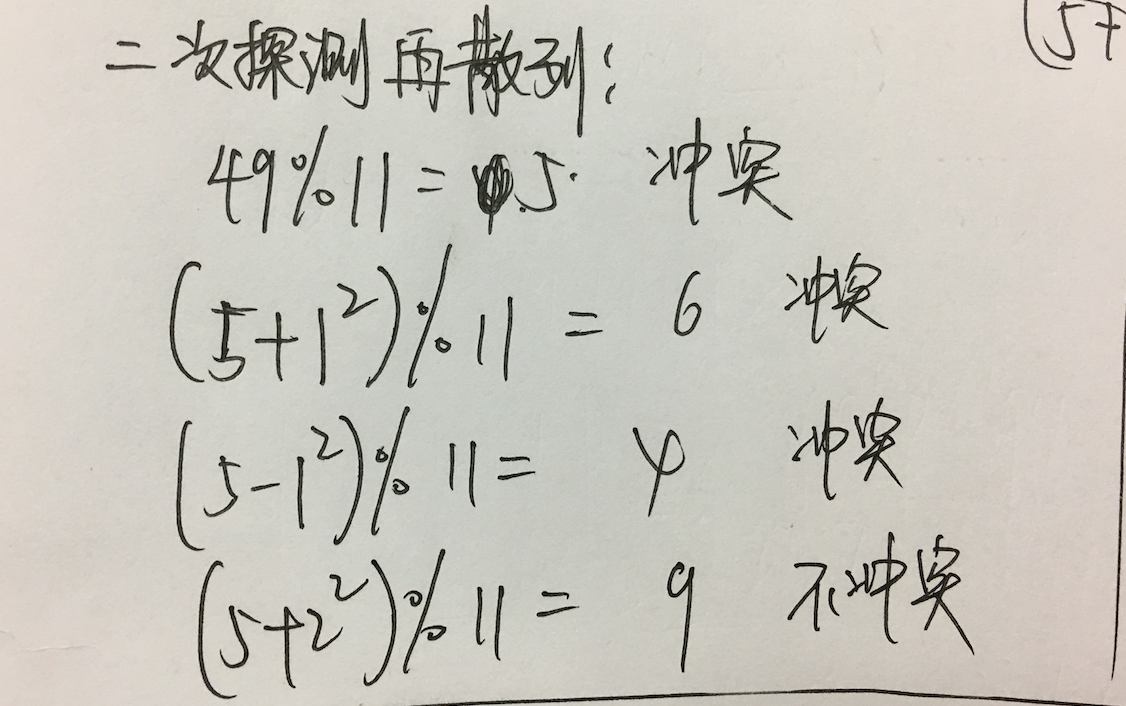 二次探测再散列：
49%11=5. 冲突
(5+1²)%11 = 6 冲突
(5-1²)%11= 4 冲突
(5+2²)%11= 9 不冲突